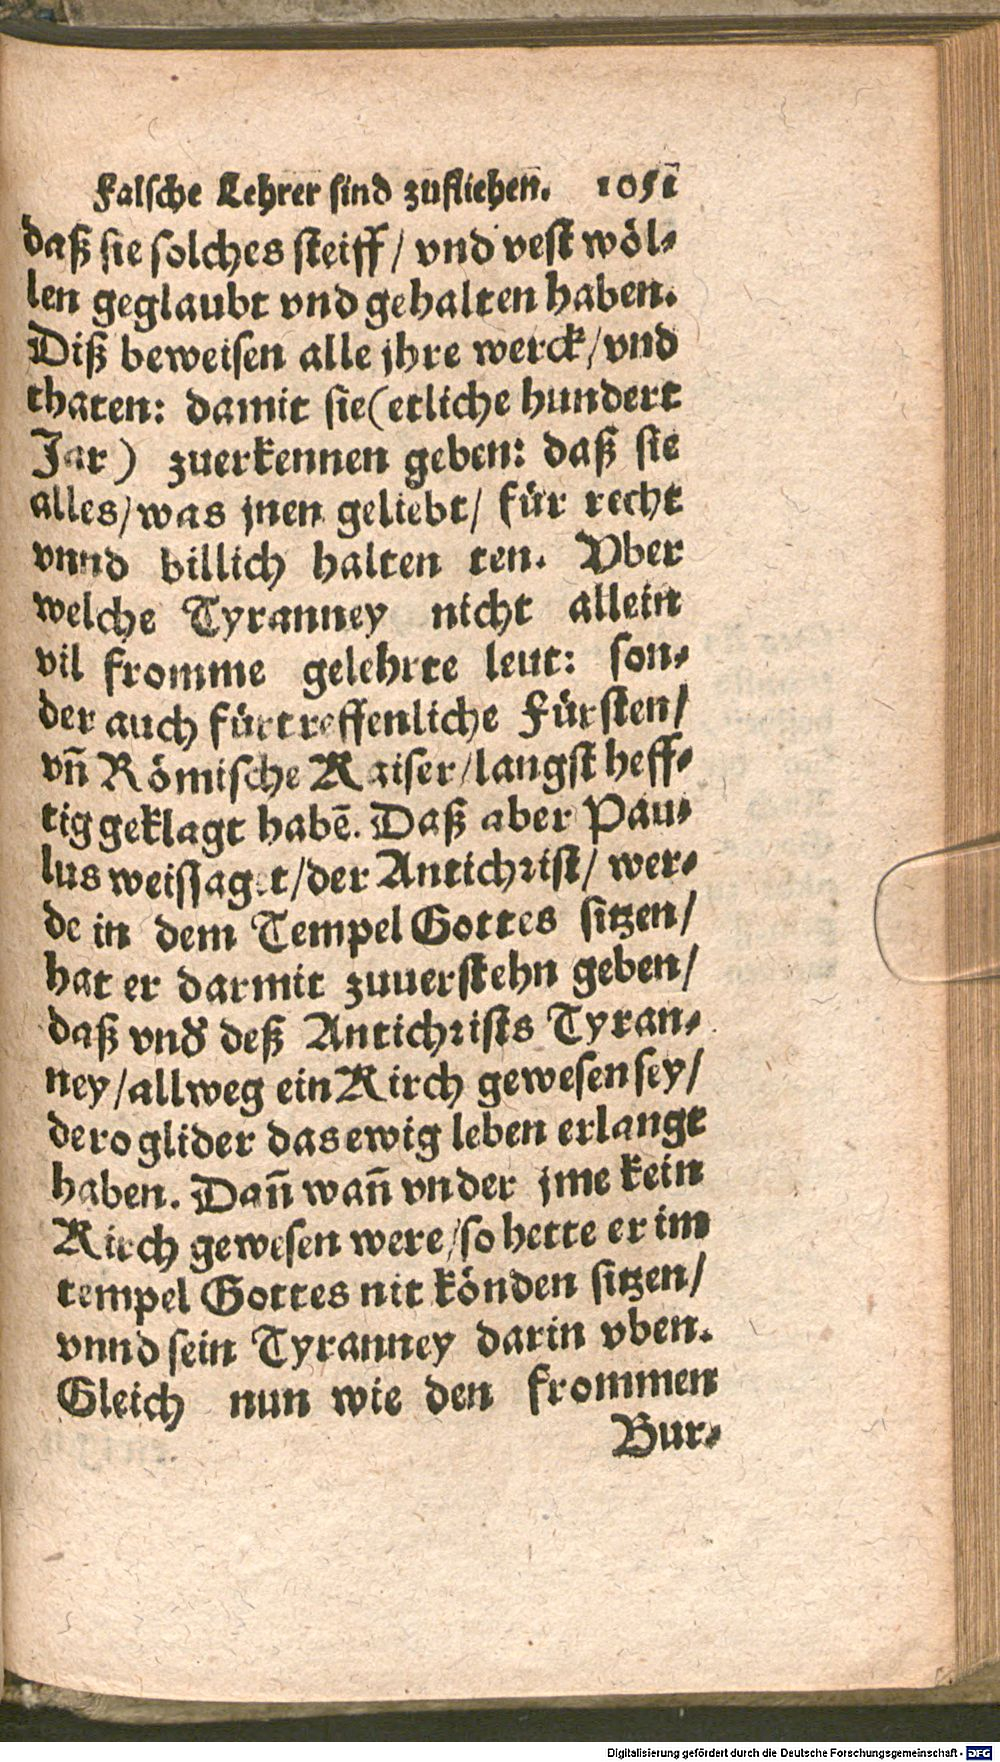 Falsche Lehrer sind zufliehen. 1051
daß sie solches steiff / vnd vest wöl⸗
len geglaubt vnd gehalten haben.
Diß beweisen alle jhre werck / vnd
thaten: damit sie (etliche hundert
Jar) zuerkennen geben: daß sie
alles / was jnen geliebt / für recht
vnnd billich halten ten. Vber
welche Tyranney nicht allein
vil fromme gelehrte leut: son⸗
der auch fürtreffenliche Fürsten /
vn̄ Römische Kaiser / langst heff⸗
tig geklagt habē. Daß aber Pau⸗
lus weissaget / der Antichrist / wer⸗
de in dem Tempel Gottes sitzen /
hat er darmit zuuerstehn geben /
daß vnd̕ deß Antichrists Tyran⸗
ney / allweg ein Kirch gewesen sey /
dero glider das ewig leben erlangt
haben. Dan̄ wan̄ vnder jme kein
Kirch gewesen were / so hette er im
tempel Gottes nit könden sitzen /
vnnd sein Tyranney darin vben.
Gleich nun wie den frommen
Bur⸗
Digitalisierung gefördert durch die Deutsche Forschungsgemeinschaft - DFG